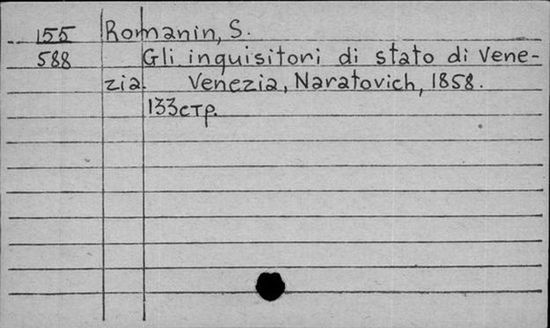 155 Romanin, S.
588 Gli inquisitori di stato di Vene-
zia. Venezia, Naratovich, 1858.
133стр.